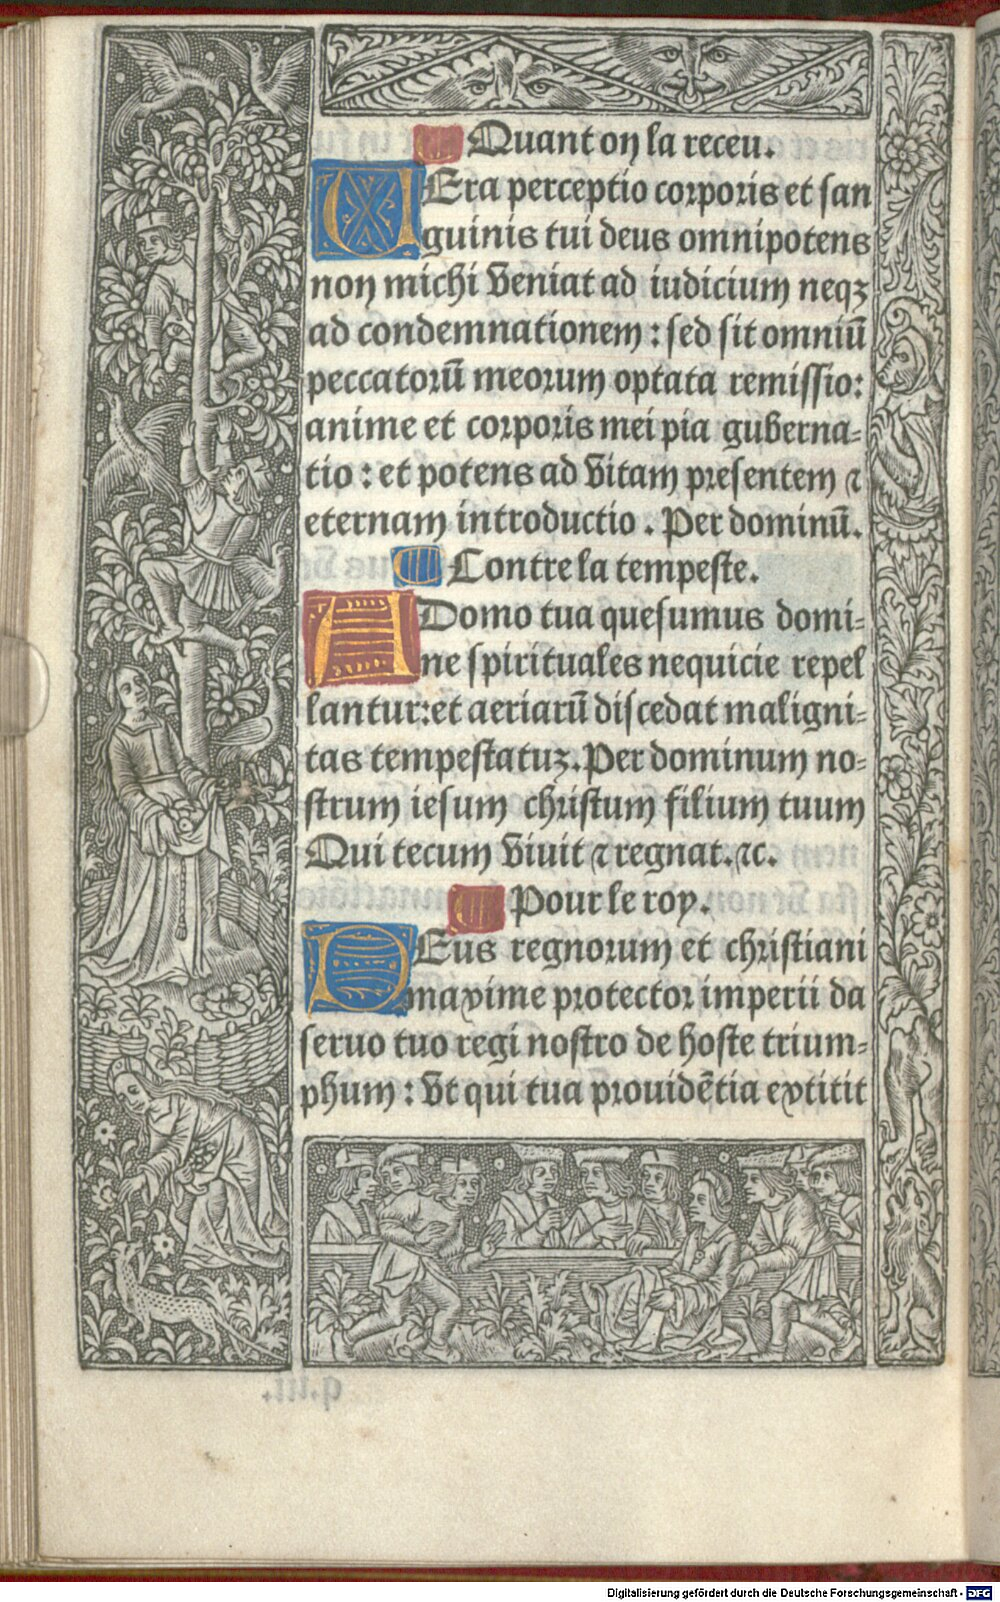 ¶ Quant on la receu.
VEra perceptio corporis et san
guinis tui deus omnipotens
non michi veniat ad iudicium neqꝫ
ad condemnationem : sed sit omniū
peccatorū meorum optata remissio:
anime et corporis mei pia guberna⸗
tio : et potens ad vitam presentem ⁊
eternam introductio . Per dominū.
¶ Contre la tempeste.
ADomo tua quesumus domi⸗
ne spirituales nequicie repel
lantur: et aeriarū discedat maligni⸗
tas tempestatuꝫ. Per dominum no⸗
strum iesum christum filium tuum
Qui tecum viuit ⁊ regnat. ⁊c.
¶ Pour le roy.
DEus regnorum et christiani
maxime protector imperii da
seruo tuo regi nostro de hoste trium⸗
phum : vt qui tua prouidētia extitit
q.iii.
Digitalisierung gefördert durch die Deutsche Forschungsgemeinschaft - DFG